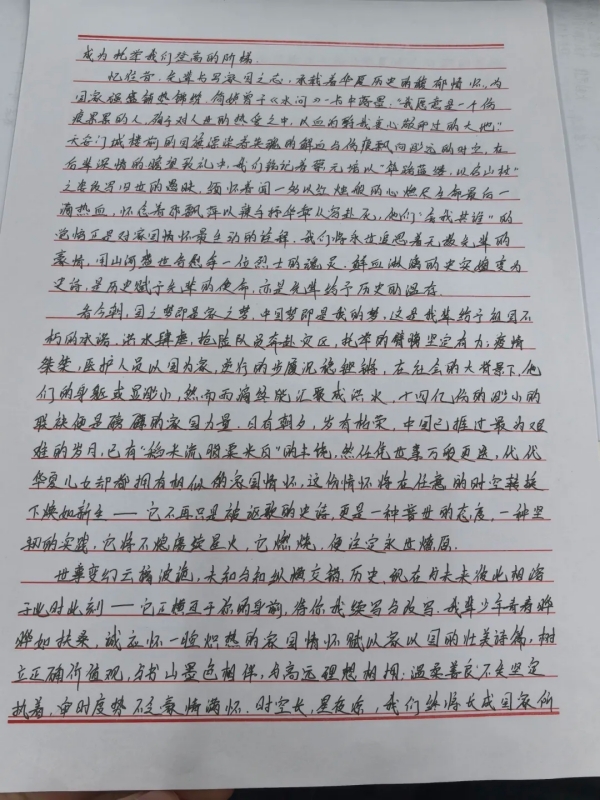 成为托举我们登高的阶梯。
忆往昔,先辈与写家国之志,承载着华夏历史的馥郁情怀。为
国家强盛铺热锦绣,简媜曾于《水问》一书中落墨:“我愿意是一个伤
痕累累的人,
天安门城楼前的国旗深染着英魂的鲜血与伤痕飘向永远的时空,在
后辈深情的瞻望敬礼中,我们铭记着蔡元培以“筚路蓝缕,以启山林”
之姿启写旧世的愚昧,缅怀着闻一多以红烛般的心燃尽生命最后一
滴热血,怀念着邓飘萍以辣手将华章从容赴死,他们“舍我其谁”的
觉悟正是对家国情怀最生动的诠释,我们将永世追思着无数先辈的
豪情,同山河盛世告慰每一位烈士的魂灵。鲜血淋漓的史实嬗变为
史诗,是历史赋予先辈的使命,亦是先辈给予历史的温存。
看今朝,国之梦即是家之梦,中国梦即是我的梦,这是我辈给予祖国不
朽的承诺。洪水肆虐,抢险队员奔赴灾区,托举的臂膀坚定有力;疫情
桀桀,医护人员以国为家,逆行的步履沉稳铿锵。在社会的大背景下,他
们的身躯或显渺小,然而雨滴终能汇聚成洪水,十四亿份的渺小的
联结便是磅礴的家国力量。日有朝夕,岁有枯荣,中国已捱过最为艰
难的岁月,已有“稻米流脂粟米白”的本钱,然任凭世事万般更迭,代代
华夏儿女却都拥有相似的家国情怀,这份情怀将在任意的时空转换
下焕如新生——它不再只是被讴歌的史诗,更是一种普世的态度,一种坚
韧的实践,它将不熄绽绽星火,它燃烧,便注定永世燎原。
世事变幻云橘波诡,未知与和纵横交错。历史、现在与未来彼此相溶
于此时此刻——它正横亘于你的身前,待你我续写与改写。我辈少年青春骅
骅如扶桑,诚应怀一腔炽热的家国情怀赋以家以国的壮美诗篇,树
立正确价值观,与书山墨色相伴,与高远理想相拥;温柔善良不失坚定
执着,审时度势不乏豪情满怀。时空长,星夜综,我们终将长成国家所